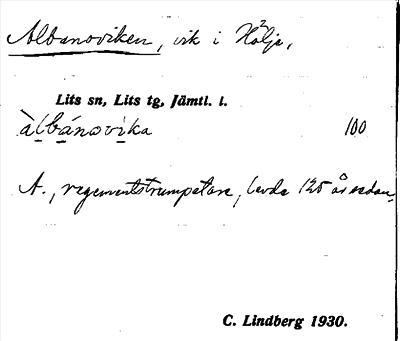 Albanoviken, vik i Hölje,
Lits sn, Lits tg, Jämtl. l.
àlbánovika 100
A., regementstrumpetare, levde 125 år sedan.
C. Lindberg 1930.